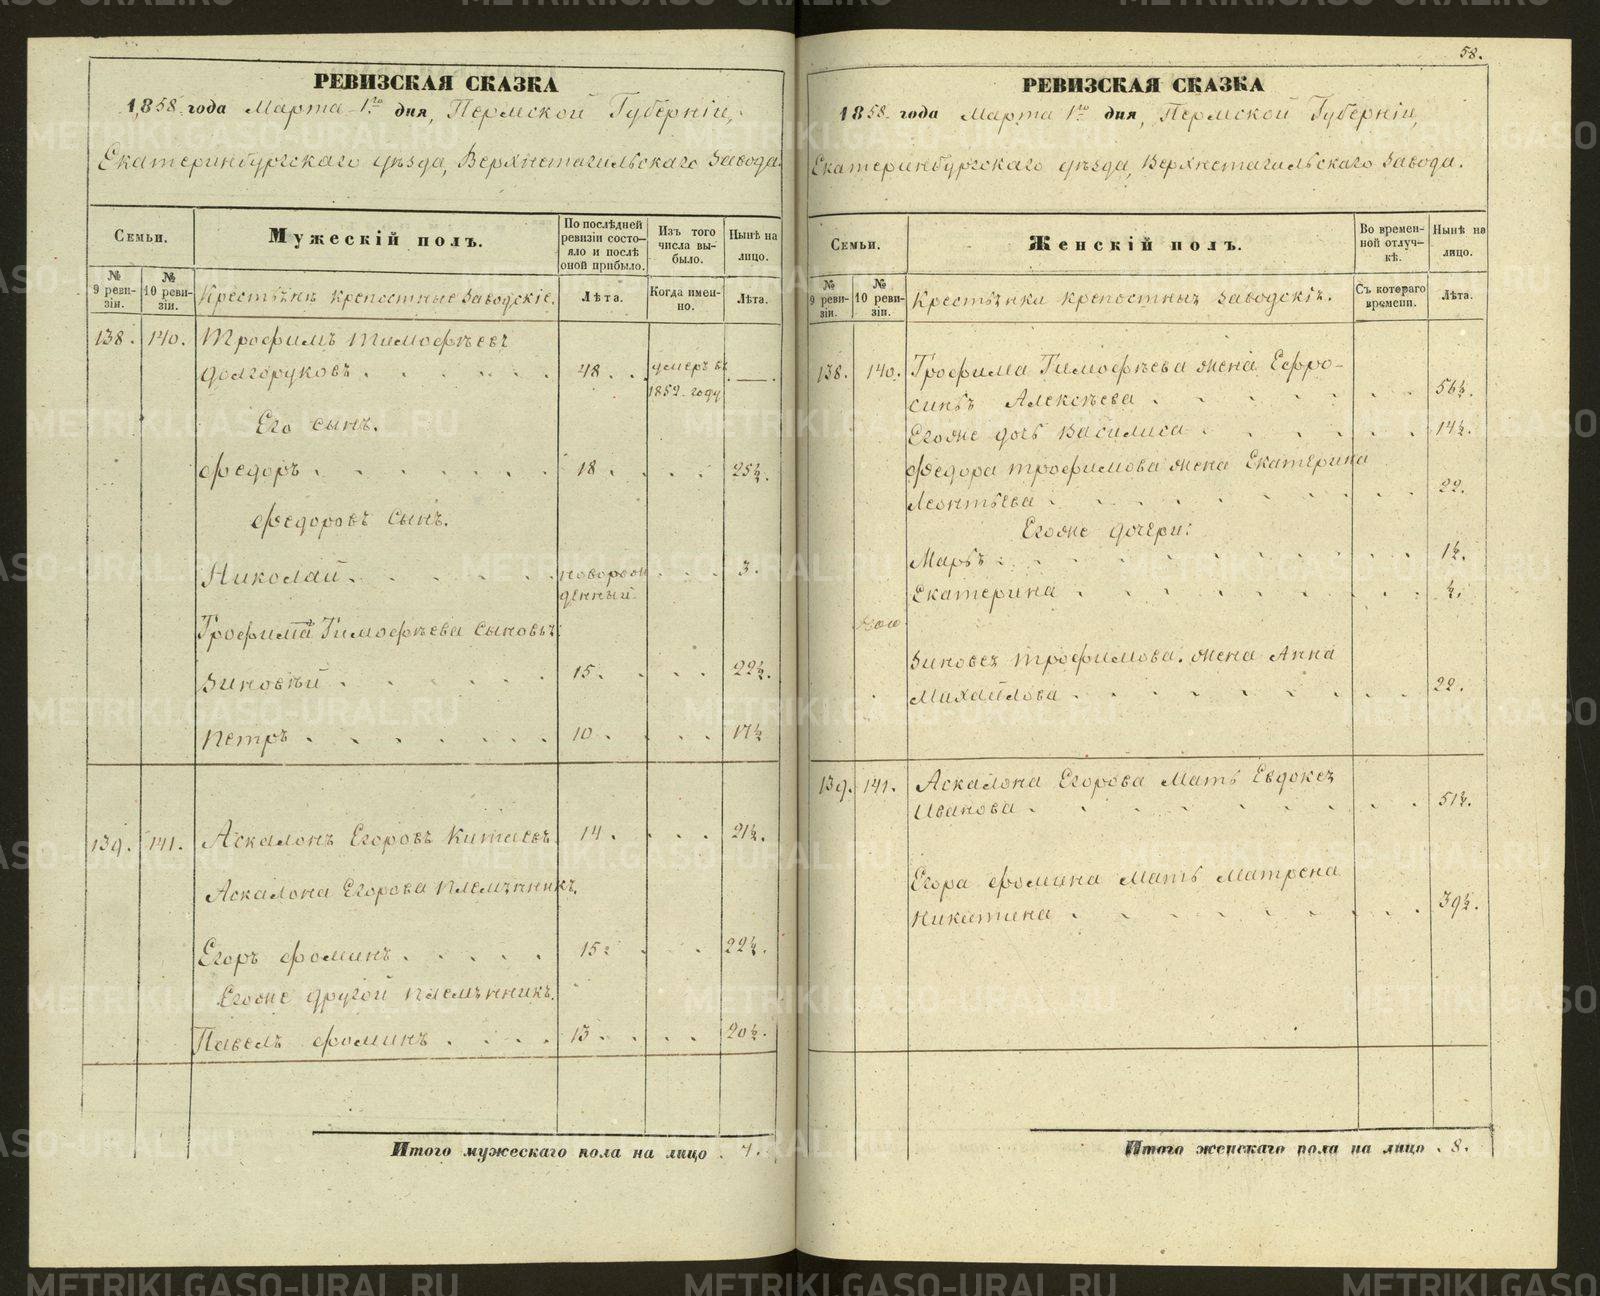 РЕВИЗСКАЯ СКАЗКА
1858 года Марта 1го дня, Пермской Губерніи,
Екатеринбургскаго уѣзда, Верхнетагильскаго Завода.
Семьи.
Мужескій полъ.
По послѣдней ревизіи состояло и послѣ оной прибыло.
Изъ того числа выбыло.
Нынѣ на лицо.
№ 9 ревизіи.
№ 10 ревизіи.
Крестьяне крепостные Заводскіе.
Лѣта.
Когда именно.
Лѣта.
138. 140. Трофимъ Тимофѣевъ
Долгоруковъ 48. умеръ въ 1852 году —
Его сынъ.
Федоръ 18. 25½.
Федоровъ сынъ.
Николай новорожденный 3.
Трофима Тимофѣева сыновья:
Зиновѣй 15. 22½.
Петръ 10. 17½
139. 141. Аскалонъ Егоровъ Китаевъ 14. 21½.
Аскалона Егорова племянникъ.
Егоръ Фоминъ 15. 22½.
Егоже другой племянникъ.
Павелъ Фоминъ 13. 20½.
Итого мужескаго пола на лицо 7.
58.
РЕВИЗСКАЯ СКАЗКА
1858 года Марта 1го дня, Пермской Губерніи,
Екатеринбургскаго уѣзда, Верхнетагильскаго Завода.
Семьи.
Женскій полъ.
Во временной отлучкѣ.
Нынѣ на лицо.
№ 9 ревизіи.
№ 10 ревизіи.
Крестьянки крепостныя Заводскія.
Съ котераго времени.
Лѣта.
138. 140. Трофима Тимофѣева жена Ефро-
синья Алексѣева 56½.
Егоже дочь Василиса 14½.
Федора Трофимова жена Екатерина
Леонтьева 22.
Егоже дочери:
Марья 1½.
Екатерина ½.
Зиновея Трофимова жена Анна
Михайлова 22.
139. 141. Аскалона Егорова Мать Евдокея
Иванова 51½.
Егора Фомина Мать Матрена
Никитина 39½.
Итого женскаго пола на лицо 8.
METRIKI.GASO-URAL.RU